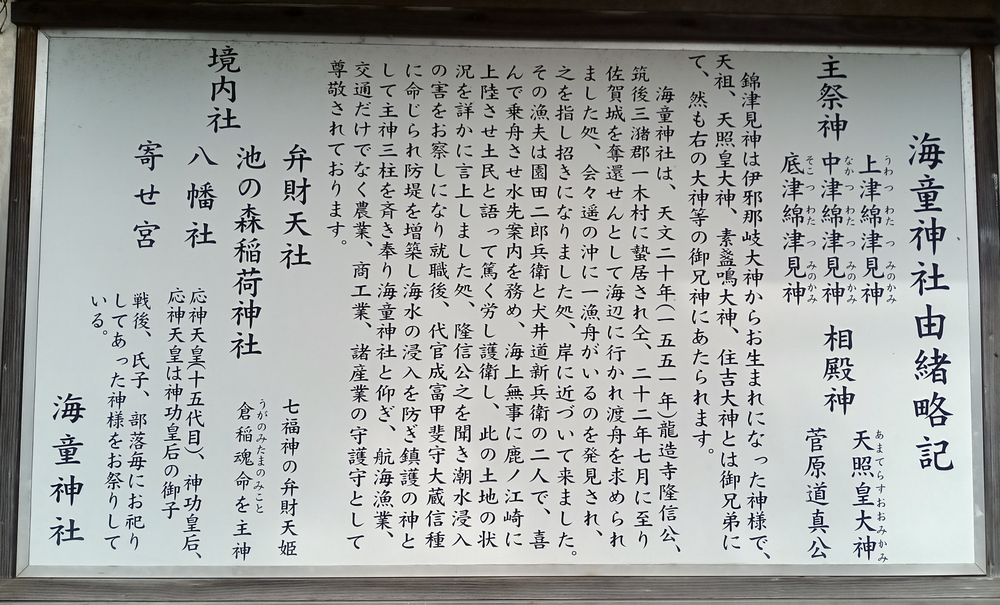 海童神社由緒略記
主祭神
上津綿津見神
うわつわたつみのかみ
中津綿津見神
なかつわたつみのかみ
底津綿津見神
そこつわたつみのかみ
相殿神
天照皇大神
あまてらすおおみかみ
菅原道真公
錦津見神は伊邪那岐大神からお生まれになった神様で、
天祖、天照皇大神、素盞鳴大神、住吉大神とは御兄弟に
て、然も右の大神等の御兄神にあたられます。
海童神社は、天文二十年(一五五一年)龍造寺隆信公、
筑後三潴郡一木村に蟄居され仝、二十二年七月に至り
佐賀城を奪還せんとして海辺に行かれ渡舟を求められ
ました処、会々遥の沖に一漁舟がいるのを発見され、
之を指し招きになりました処、岸に近づいて来ました。
その漁夫は園田二郎兵衛と犬井道新兵衛の二人で、喜
んで乗舟させ水先案内を務め、海上無事に鹿ノ江崎に
上陸させ土民と語って篤く労し護衛し、此の土地の状
況を詳かに言上しました処、隆信公之を聞き潮水浸入
の害をお察しになり就職後、代官成富甲斐守大蔵信種
に命じられ防堤を増築し海水の浸入を防ぎ鎮護の神と
して主神三柱を斉き奉り海童神社と仰ぎ、航海漁業、
交通だけでなく農業、商工業、諸産業の守護守として
尊敬されております。
境内社
弁財天社
七福神の弁財天姫
池の森稲荷神社
倉稲魂命を主神
うがのみたまのみこと
八幡社
応神天皇(十五代目)、神功皇后、
応神天皇は神功皇后の御子
寄せ宮
戦後、氏子、部落毎にお祀り
してあった神様をお祭りして
いる。
海童神社